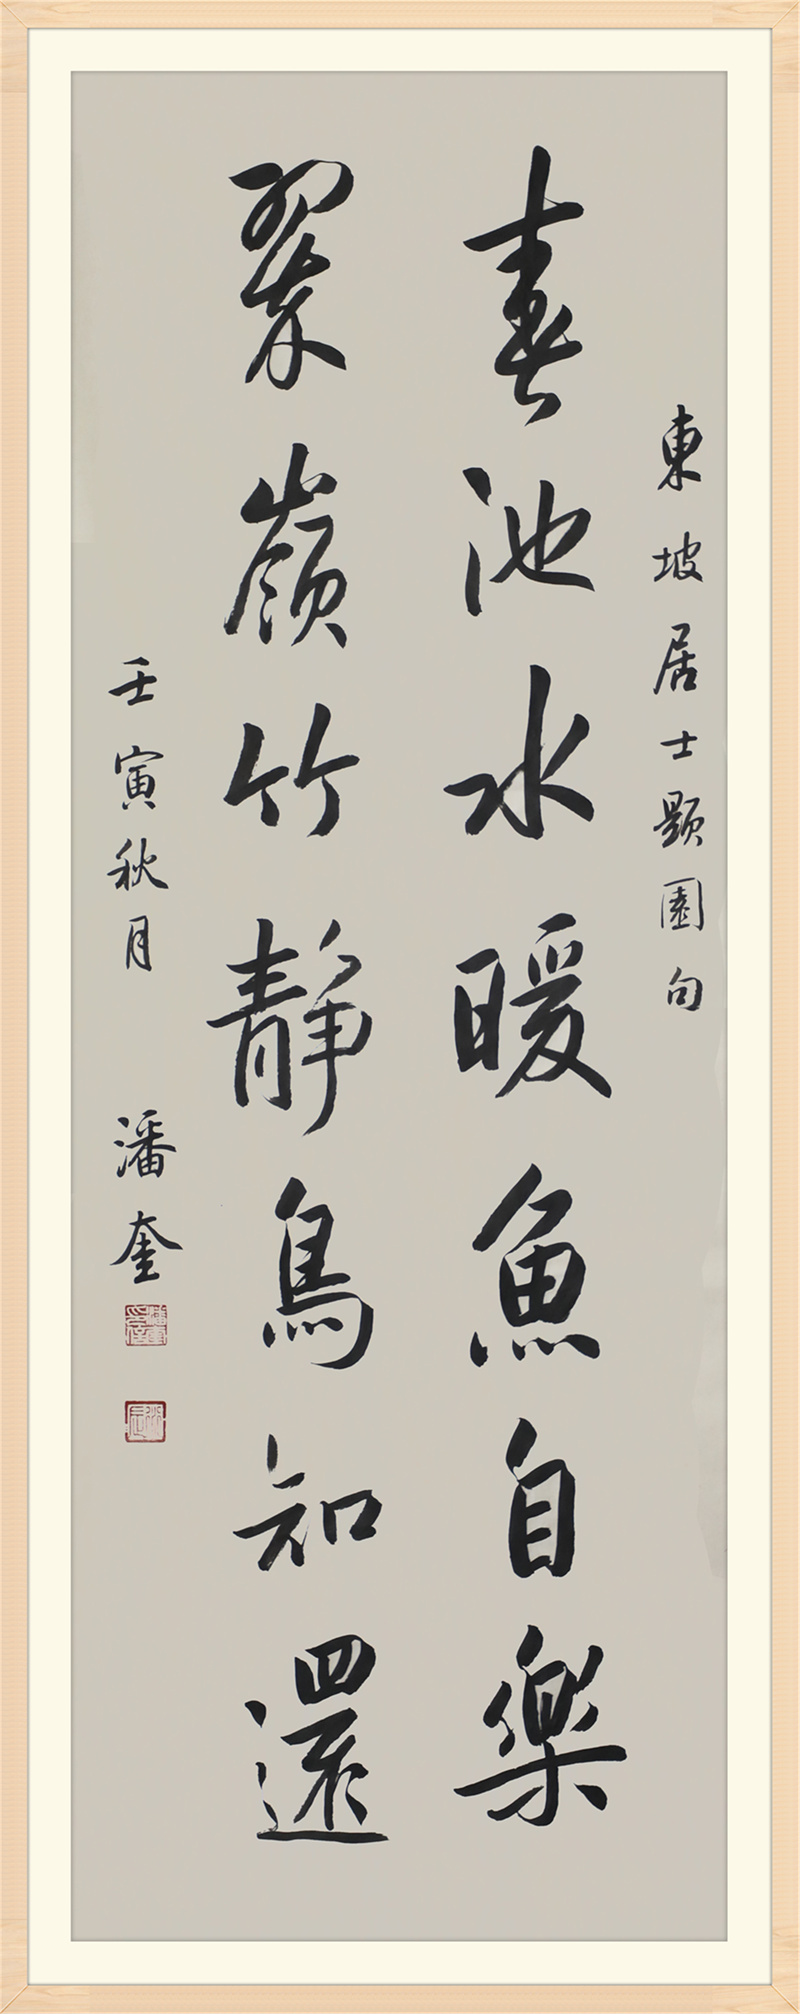 東坡居士題園句
春池水暖魚自樂
翠嶺竹靜鳥知還
壬寅秋月
潘奎